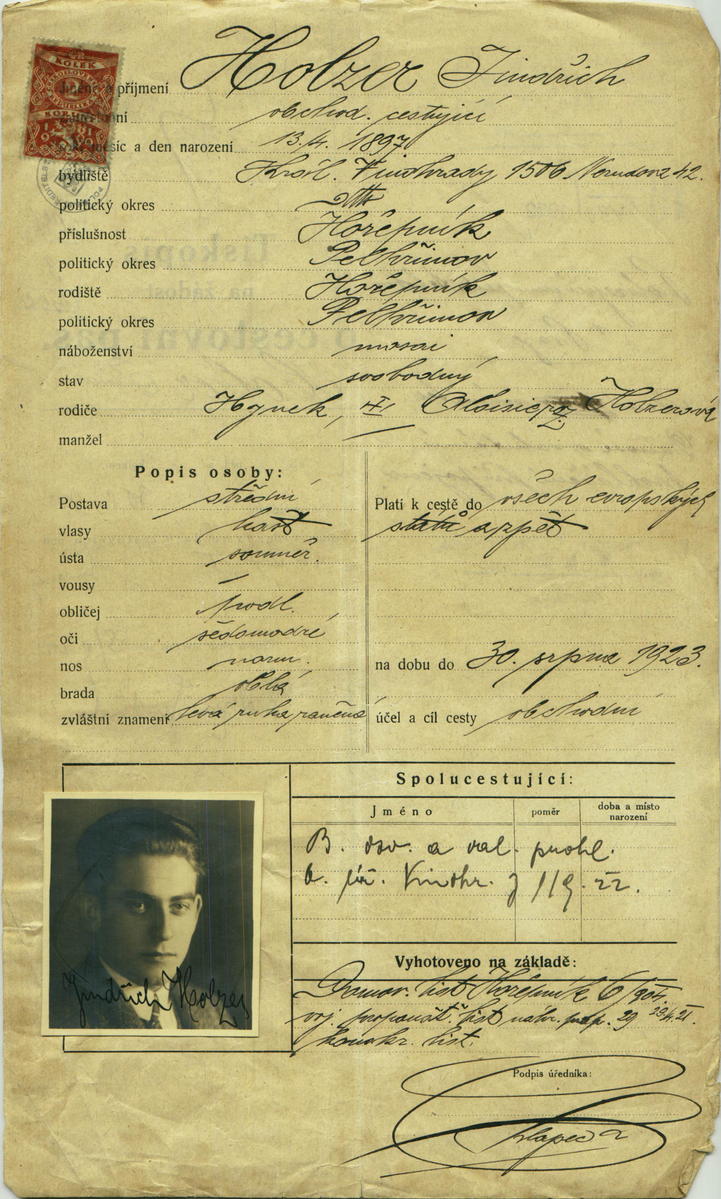 KOLEK
jméno a příjmení Holzer Jindřich
obchod. cestující
měsíc a den narození 13.4. 1897
bydliště Král. Vinohrady 1506 Nerudova 42.
politický okres
příslušnost Hořepník
politický okres Pelhřimov
rodiště Hořepník
politický okres Pelhřimov
náboženství mosai
stav svobodný
rodiče Hynek, Aloisie Holzerová
manžel —
Popis osoby:
Postava střední
vlasy
ústa souměr.
vousy —
obličej podl.
oči šedomodré
nos norm.
brada oblá
zvláštní znamení levá ruka raněná
Platí k cestě do všech evropských
států a zpět
na dobu do 30. srpna 1923.
účel a cíl cesty obchodní
Spolucestující:
Jméno poměr doba a místo narození
B. a val.
Vinohr. 119 22.
Jindřich Holzer
Vyhotoveno na základě:
Domov. list Hořepník 6/
voj. list 29 23.4.21.
list.
Podpis úředníka: